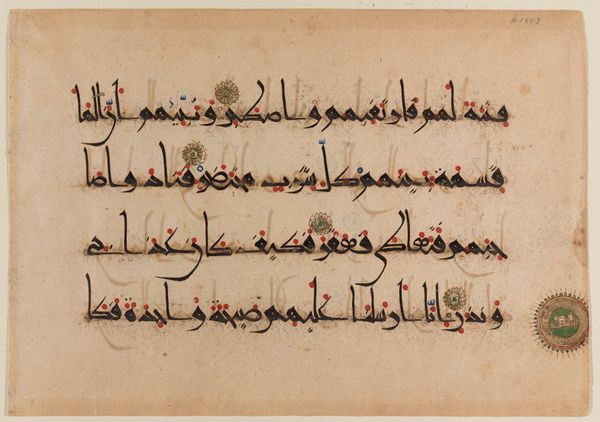 فتنة لهم فارتقبهم واصطبر ونبئهم أن الما
قسمة بينهم كل شرب محتضر فنادوا صا
حبهم فتعاطى فعقر فكيف كان عذابى
ونذر إنا أرسلنا عليهم صيحة واحدة فكا